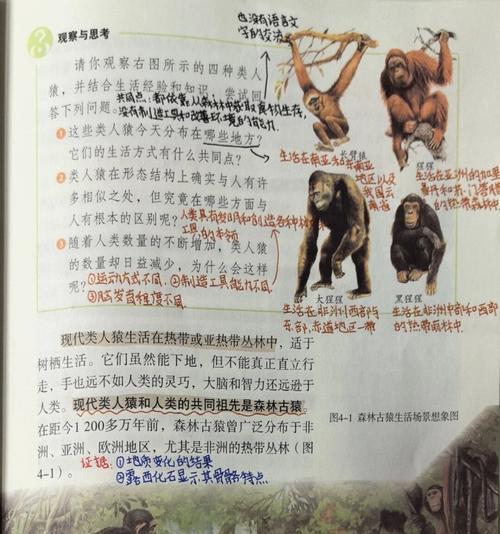 观察与思考
也没有语言文
字的交流
请你观察右图所示的四种类人
猿，并结合生活经验和知识，尝试回
答下列问题。
共同点：都依靠从森林中获取食物生存，
没有制造工具和改善环境的能力
1 这些类人猿今天分布在哪些地方？
它们的生活方式有什么共同点？
2 类人猿在形态结构上确实与人有许
多相似之处，但究竟在哪些方面与
人有根本的区别呢？
人类具有发明和制造各种
工具的本领
3 随着人类数量的不断增加，类人猿
的数量却日益减少，为什么会这样
呢？
①运动方式不同.②制造工具能力不同.
③脑发育程度不同.
长臂猿
生活在南亚
地区以及
我国云
南省
猩猩
生活在亚洲的加里
曼丹和苏门答腊
的热带森林中.
大猩猩
生活在非洲西部与
东部,赤道地区一带
黑猩猩
生活在非洲中部和西部
的热带雨林中.
现代类人猿生活在热带或亚热带丛林中，适于
树栖生活。它们虽然能下地，但不能真正直立行
走，手也远不如人类的灵巧，大脑和智力还远逊于
人类。现代类人猿和人类的共同祖先是森林古猿。
在距今1 200多万年前，森林古猿曾广泛分布于非
洲、亚洲、欧洲地区，尤其是非洲的热带丛林（图
4-1）。
证据：①地质变化的结果
②露西化石显示其骨骼特点
图4-1 森林古猿生活场景想象图